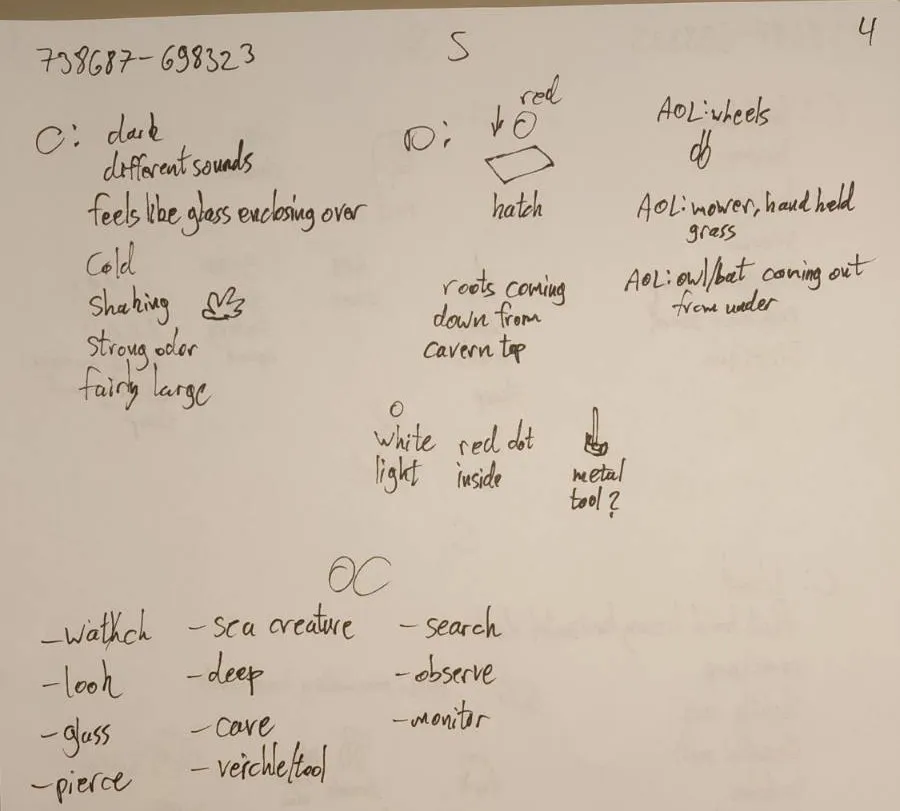 4
738687-698323
S
C: dark
different sounds
feels like glass enclosing over
Cold
Shaking
Strong odor
fairly large
D:
red
hatch
roots coming
down from
cavern top
white
light
red dot
inside
metal
tool?
AOL: wheels
AOL: mower, hand held
grass
AOL: owl/bat coming out
from under
OC
- watkch
- look
- glass
- pierce
- sea creature
- deep
- cave
- veichle/tool
- search
- observe
- monitor